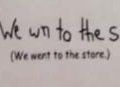 We wn to the s
(We went to the store.)